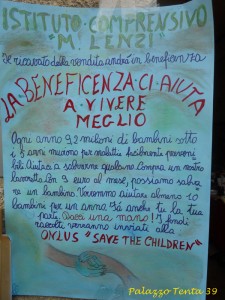 ISTITUTO COMPRENSIVO
"M. LENZI"
Il ricavato della vendita andrà in beneficenza
LA BENEFICENZA CI AIUTA
A VIVERE
MEGLIO
Ogni anno 9,2 milioni di bambini sotto
i 5 anni muoiono per malattie facilmente preveni
bili. Aiutaci a salvarne qualcuno. Compra un nostro
lavoretto. Con 9 euro al mese, possiamo salva
re un bambino. Vorremmo aiutare almeno 10
bambini per un anno. Fà anche tu la tua
parte. Dacci una mano! I fondi
raccolti verranno inviati alla
ONLUS "SAVE THE CHILDREN"
Palazzo Tenta 39